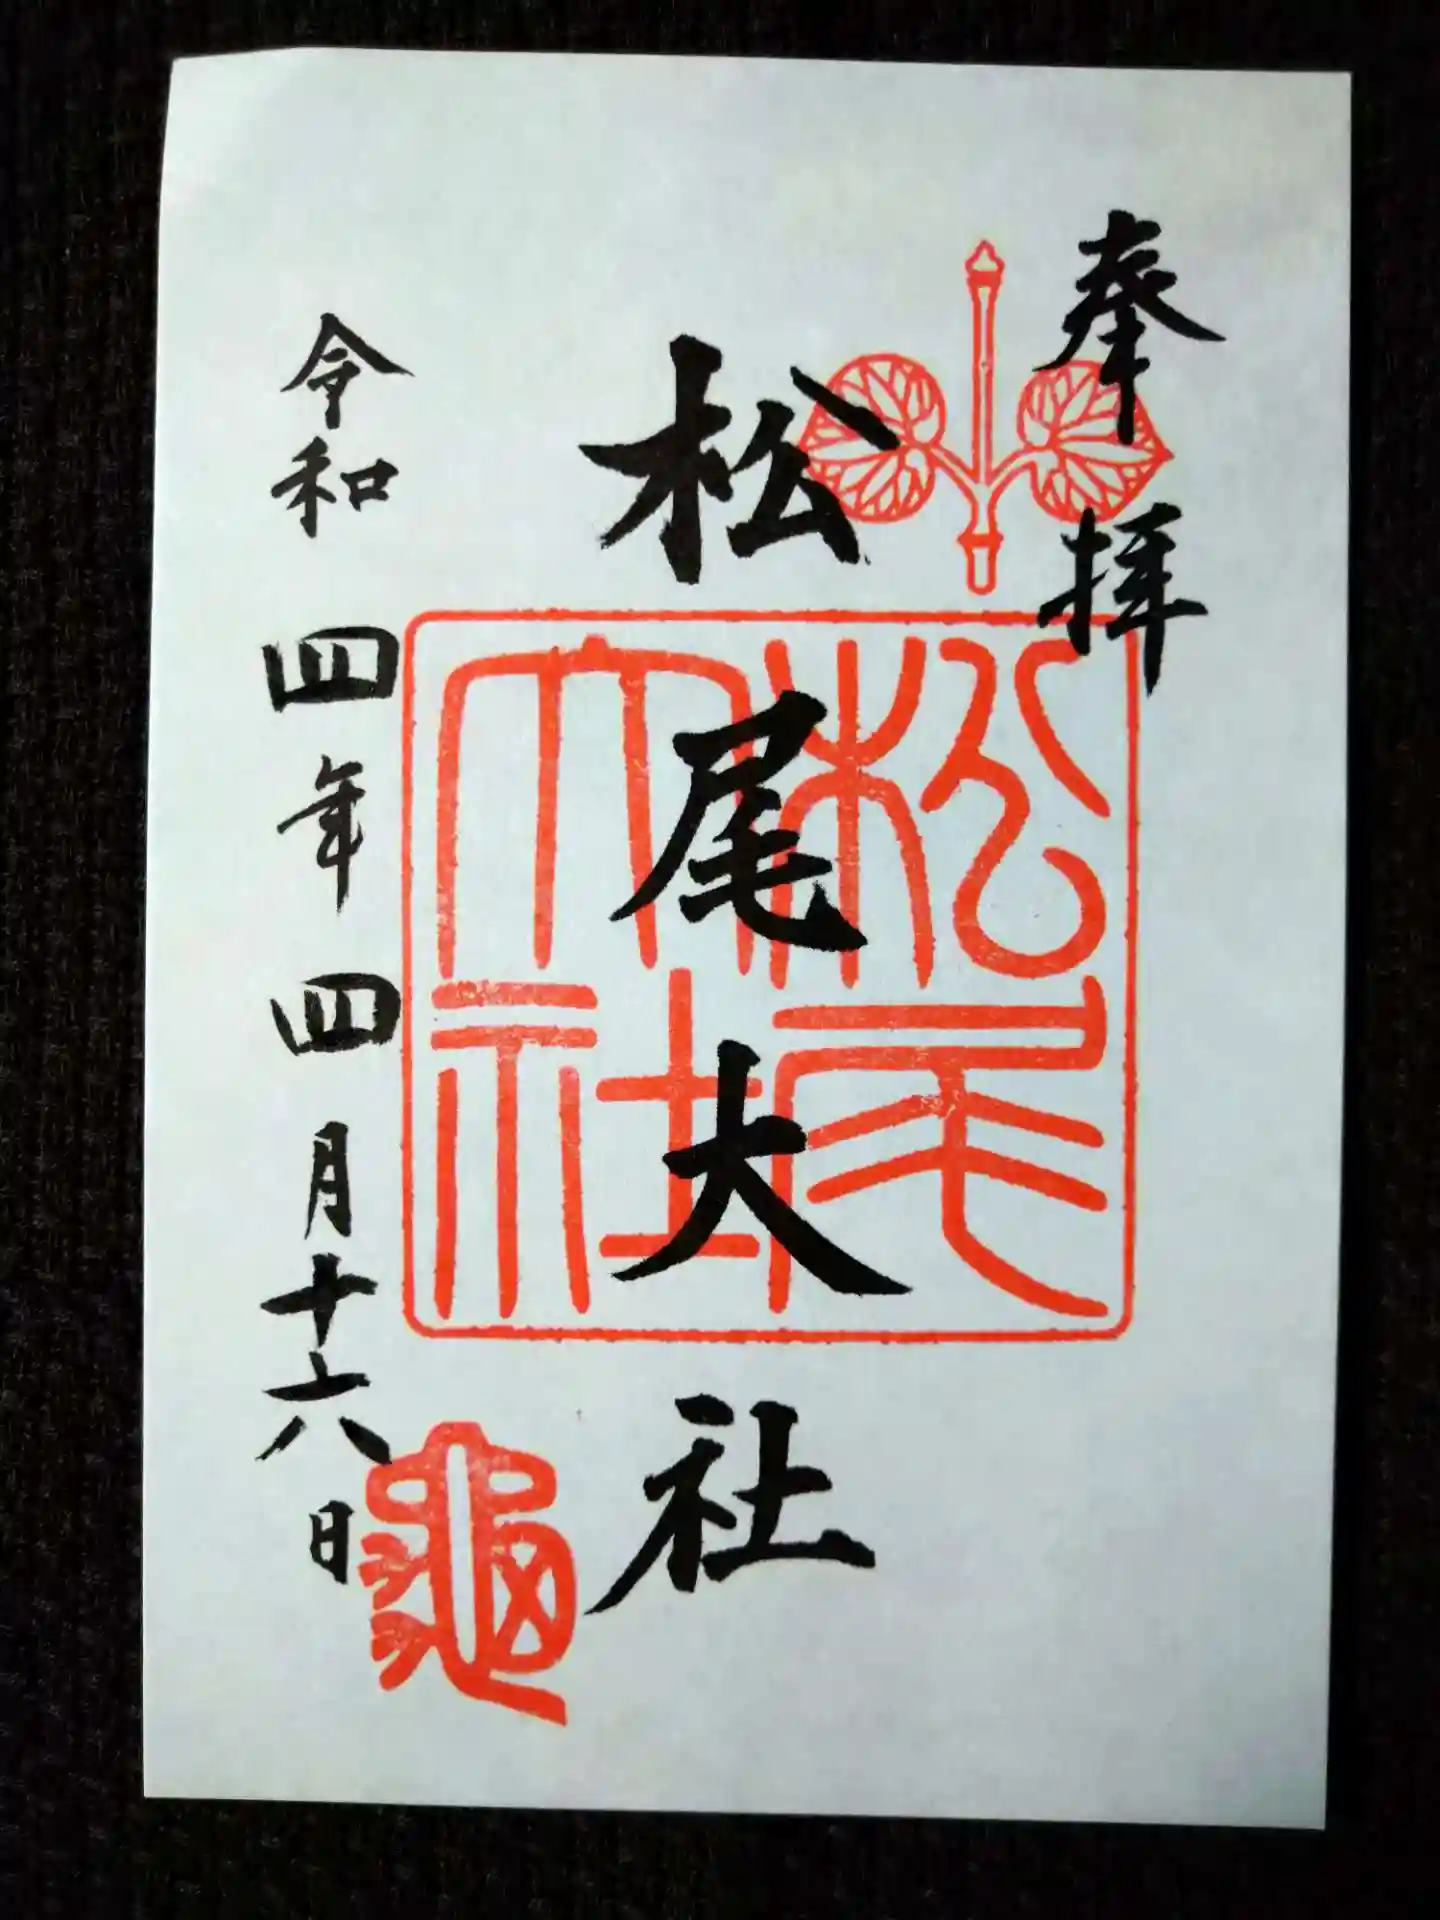 奉拝
松尾大社
松尾大社
令和四年四月十六日
亀